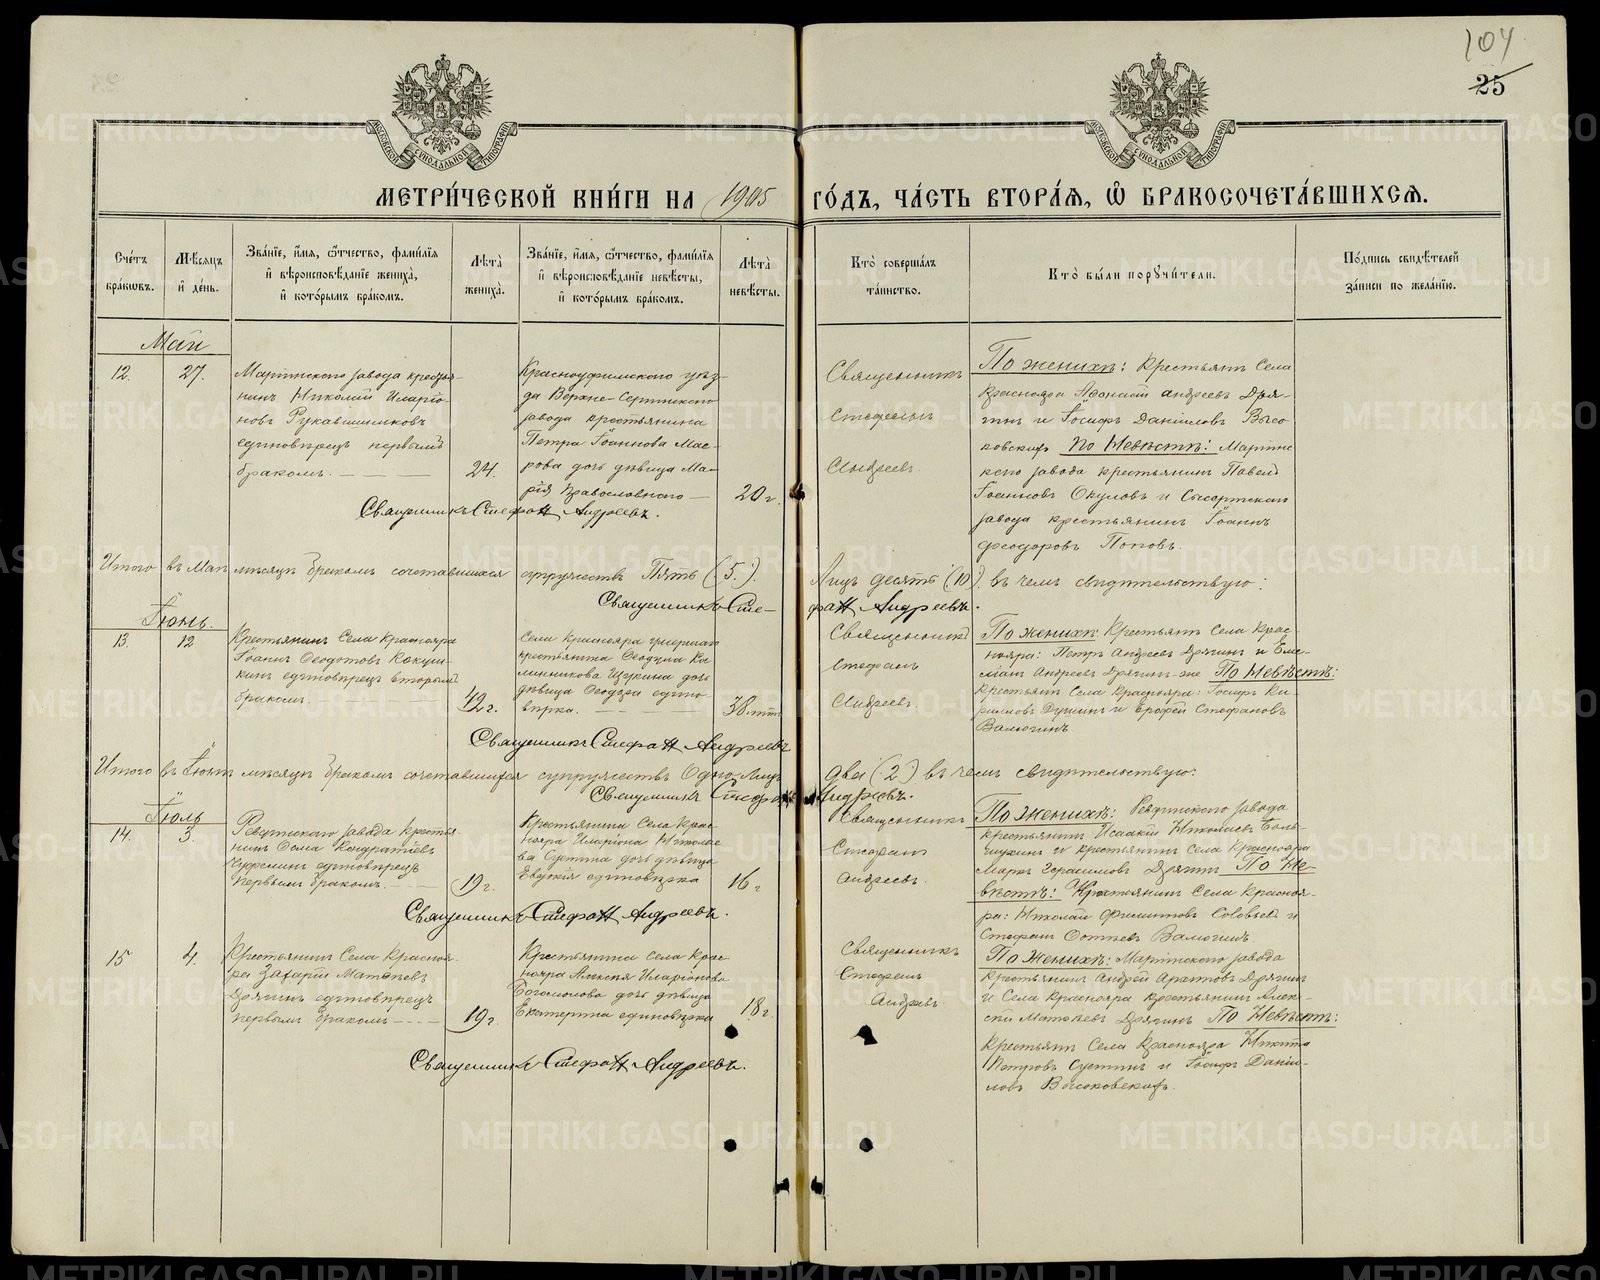 104
25
МЕТРИ́ЧЕСКОЙ КНИ́ГИ НА 1905 ГО́ДЪ, ЧА́СТЬ ВТОРА́Я, Ѡ БРАКОСОЧЕТА́ВШИХСЯ.
Сче́тъ бра́ковъ.
Мѣ́сяцъ и де́нь.
Зва́нїе, и́мя, ѻ́тчество, фами́лїя и вѣроисповѣ́данїе жениха̀, и кото́рымъ бра́комъ.
Лѣта̀ жениха̀.
Зва́нїе, и́мя, ѻ́тчество, фами́лїя и вѣроисповѣ́данїе невѣ́сты, и кото́рымъ бра́комъ.
Лѣта̀ невѣ́сты.
Кто̀ соверша́лъ та́инство.
Кто̀ бы́ли порꙋчи́тели.
По́дпись свидѣ́телей за́писи по жела́нїю.
Май
12.
27.
Маріинскаго завода крестья-
нинъ Николай Иларіо-
новъ Рукавишниковъ
единовѣрецъ первымъ
бракомъ.
24.
Красноуфимскаго уѣз-
да Верхне-Сергинскаго
завода крестьянина
Петра Іоаннова Мас-
рова дочь дѣвица Ма-
рія православнаго
20 г.
Священникъ
Стефанъ
Андреевъ
По женихѣ: Крестьяне Села
Краснояра Афонасій Андреевъ Дря-
гинъ и Іосифъ Даніиловъ Высо
ковскихъ По Невѣстѣ: Маріин
скаго завода крестьянинъ Павелъ
Іоанновъ Окуловъ и Сысертскаго
завода крестьянинъ Іоаннъ
Феодоровъ Поповъ.
Священникъ Стефанъ Андреевъ.
Итого въ Маѣ мѣсяцѣ бракомъ сочетавшихся супружествъ Пять (5). Лицъ десять (10). въ чемъ свидѣтельствую:
Священникъ Стефанъ Андреевъ.
Іюнь.
13.
12
Крестьянинъ Села Краснояра
Іоаннъ Феодотовъ Кокуш-
кинъ единовѣрецъ вторымъ
бракомъ.
42 г.
Села Краснояра умершаго
крестьянина Феодула Ка
линникова Щукина дочь
дѣвица Феодора едино-
вѣрка.
38 лѣтъ
Священникъ
Стефанъ
Андреевъ.
По женихѣ: Крестьяне Села Крас-
нояра: Петръ Андреевъ Дрягинъ и Еме-
ліанъ Андреевъ Дрягинъ-же По Невѣстѣ:
Крестьяне Села Краснояра: Іосифъ Ки-
риловъ Душинъ и Ерофей Стефановъ
Валюгинъ
Священникъ Стефанъ Андреевъ
Итого въ Іюнѣ мѣсяцѣ бракомъ сочетавшихся супружествъ Одно Лицъ два (2) въ чемъ свидѣтельствую:
Священникъ Стефанъ Андреевъ.
Іюль
14.
3.
Ревдинскаго завода Крестья-
нинъ Фома Кондратіевъ
единовѣрецъ
первымъ бракомъ.
19 г.
Крестьянина Села Крас-
нояра Иларіона Николае
ва Сунгина дочь дѣвица
Евдокія единовѣрка
16 г
Священникъ
Стефанъ
Андреевъ.
По Женихѣ: Ревдинскаго завода
крестьянинъ Исаакій Николаевъ Боль-
шухинъ и крестьянинъ Села Краснояра
Маркъ Герасимовъ Дрягинъ По Не-
вѣстѣ: Крестьянинъ Села Красноя-
ра: Николай Филипповъ Соловьевъ и
Стефанъ Фотіевъ Валюгинъ
Священникъ Стефанъ Андреевъ.
15
4.
Крестьянинъ Села Красноя-
ра Захарій Матвѣевъ
Дрягинъ единовѣрецъ
первымъ бракомъ
19 г.
Крестьянина Села Крас-
нояра Алексѣя Иларіонова
Богомолова дочь дѣвица
Екатерина единовѣрка
18 г.
Священникъ
Стефанъ
Андреевъ
По Женихѣ: Маріинскаго завода
крестьянинъ Андрей Архиповъ Дрягинъ
и Села Краснояра крестьянинъ Алек-
сѣй Матвѣевъ Дрягинъ По Невѣстѣ:
Крестьяне Села Краснояра Никита
Петровъ Сунгинъ и Іосифъ Даніи-
ловъ Высоковскихъ.
Священникъ Стефанъ Андреевъ.
METRIKI.GASO-URAL.RU